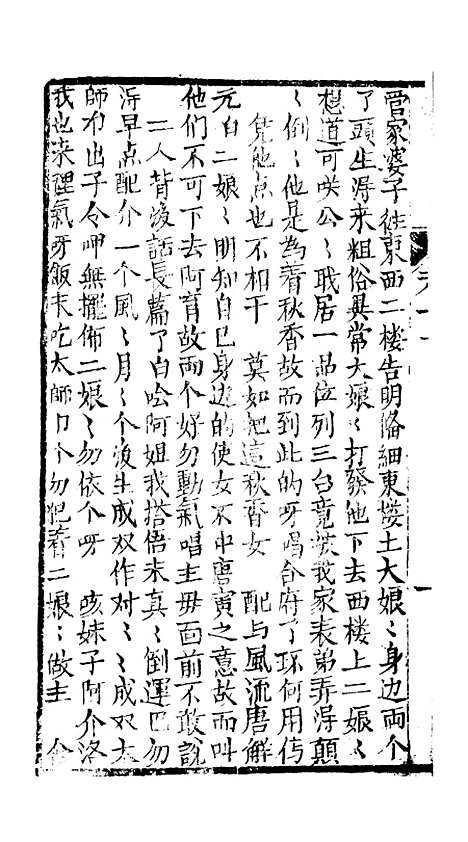 管家婆子往東西二楼告明俻細東楼上大娘〻身边两个
了頭生淂来粗俗異常大娘〻打發他下去西楼上二娘〻
想道可咲公〻戢居一品位列三台竟被我家表弟弄淂顛
〻倒〻他是為着秋香故而到此的呀唱合府了环何用传
凭他点也不相干　莫如把這秋香女　配与風流唐觧
元白二娘〻明知自巳身边的使女不中唐寅之意故而叫
他们不可下去阿育故两个好勿動氣唱主毋面前不敢說
二人背後話長篇丫白唅阿姐我搭倍未真〻倒運巴勿
淂早点配介一个風〻月〻个後生成双作对〻〻成双太
師冇出子令呷無擺佈二娘〻勿依个呀　咳妹子阿介洛
我也来裡氣呀飯末吃太師个勿犯着二娘〻做主　合